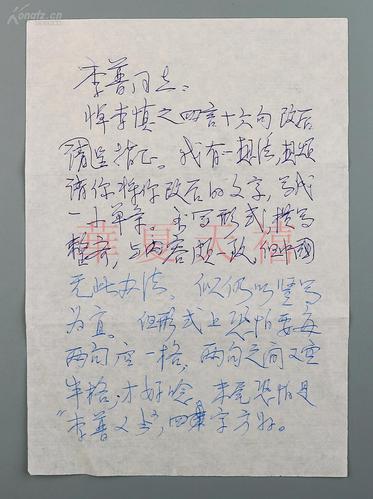 Kongfz.cn
李普同志:
悼李慎之四言十六句改后
请呈指正。我有一想法,想烦
请你将你改后的文字,写成
一小单条。书写形式,横写
整齐,与内容颇一致,但中国
无此办法。似仍以竖写
为宜。但形式上恐怕要每
两句空一格,两句之间又空
半格,才好念。末尾恐怕是
“李普又书”,四字方好。
華夏天禧